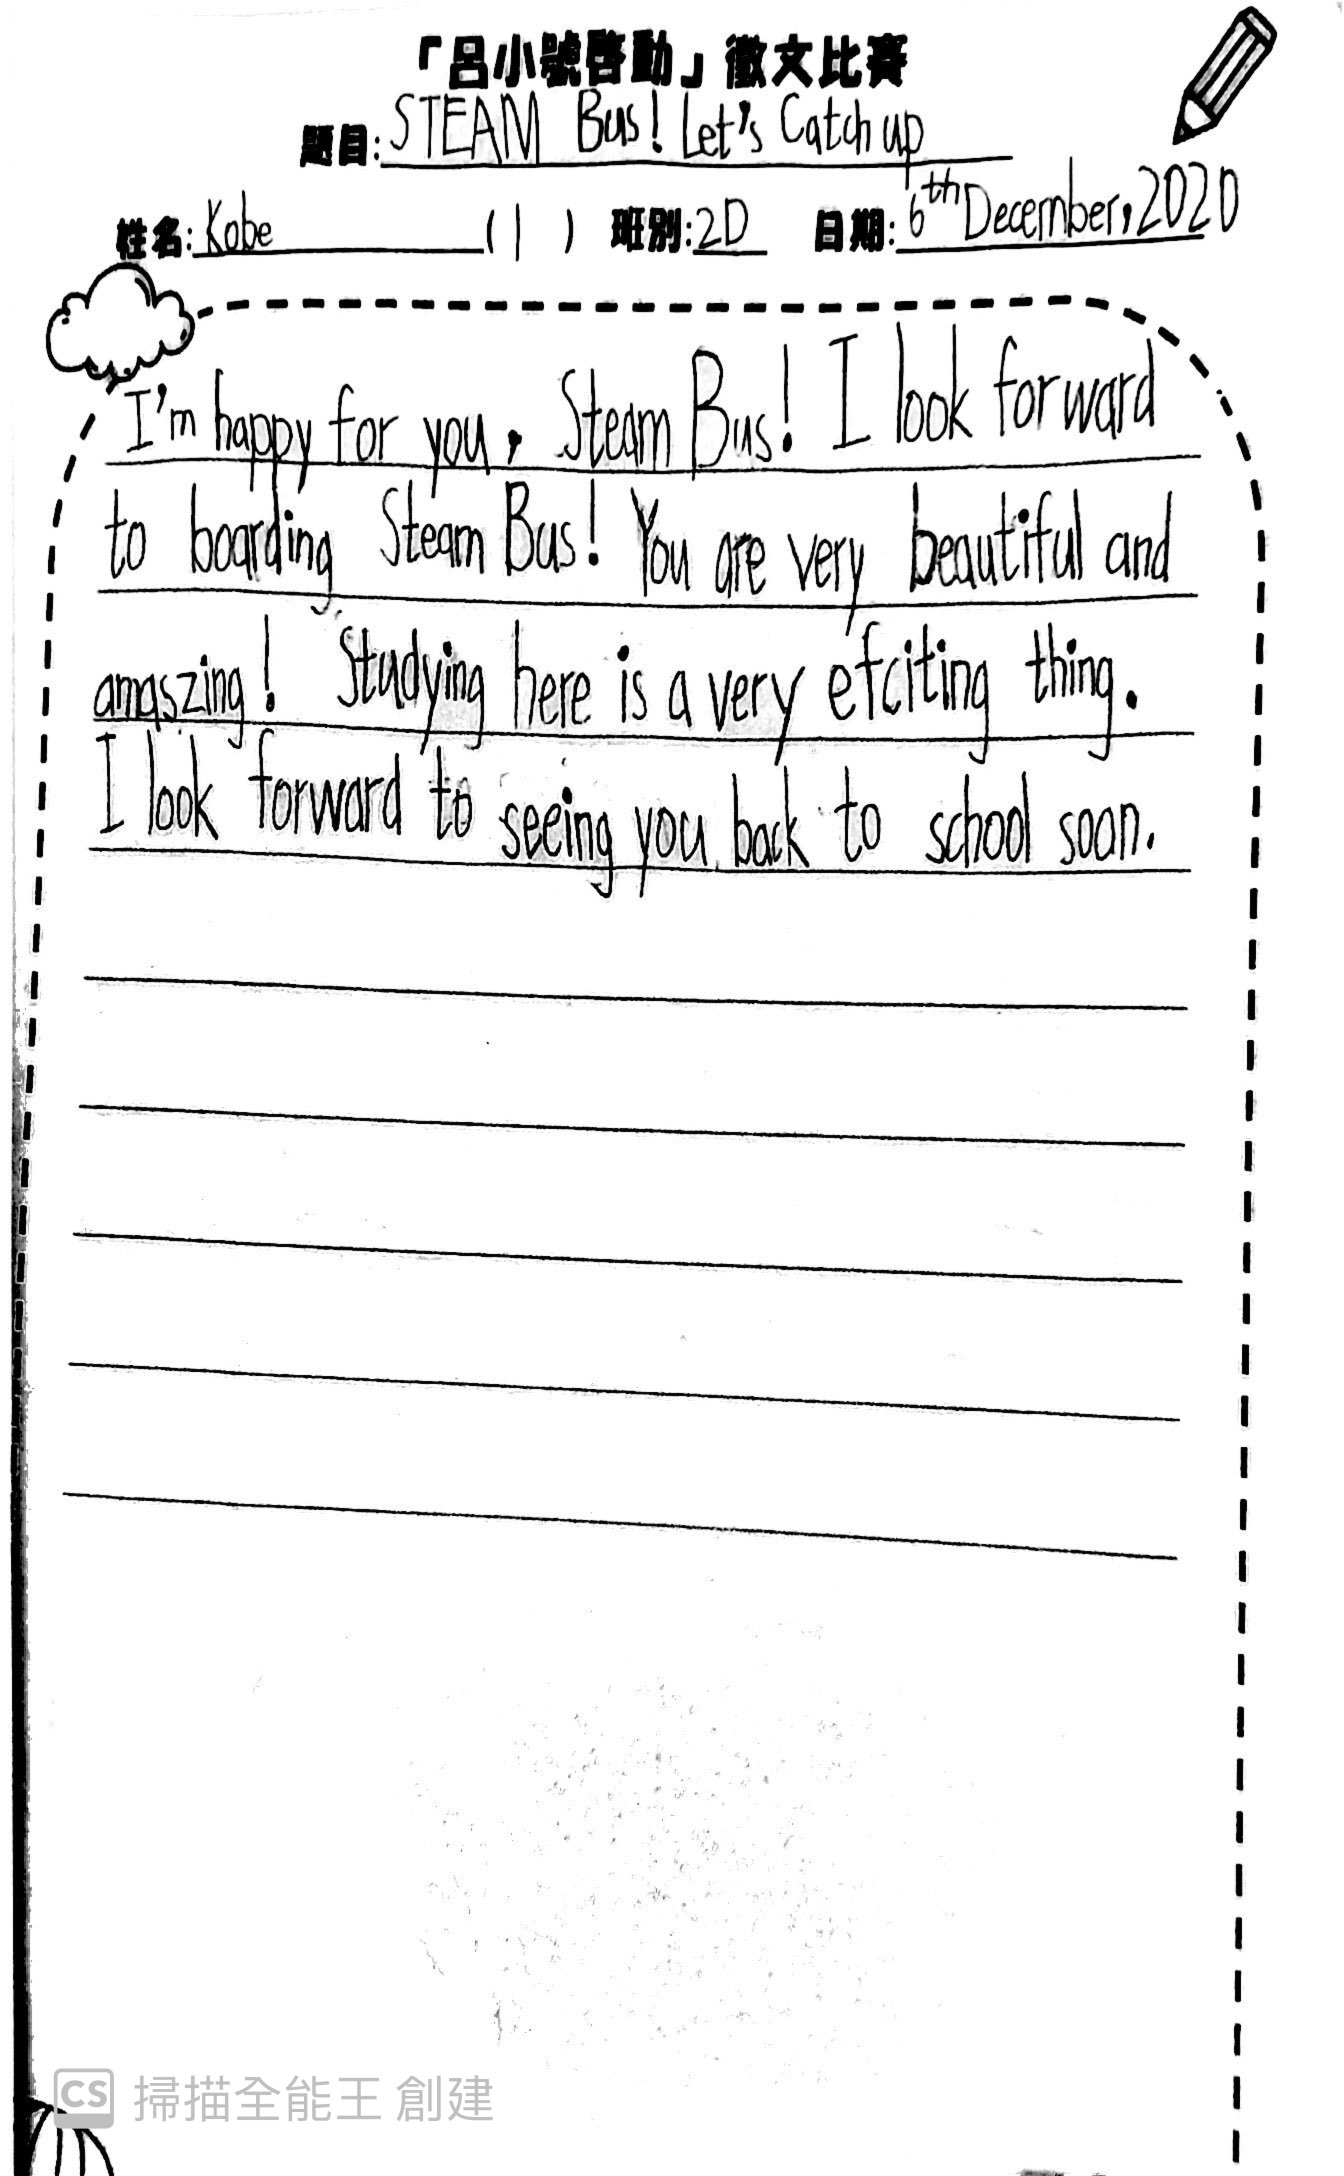 「呂小號啓動」徵文比賽
題目: STEAM Bus! Let's Catch up
姓名: Kobe (1) 班別: 2D 日期: 6th December, 2020
I'm happy for you, Steam Bus! I look forward
to boarding Steam Bus! You are very beautiful and
amaszing! Studying here is a very efciting thing.
I look forward to seeing you back to school soon.
CS 掃描全能王 創建